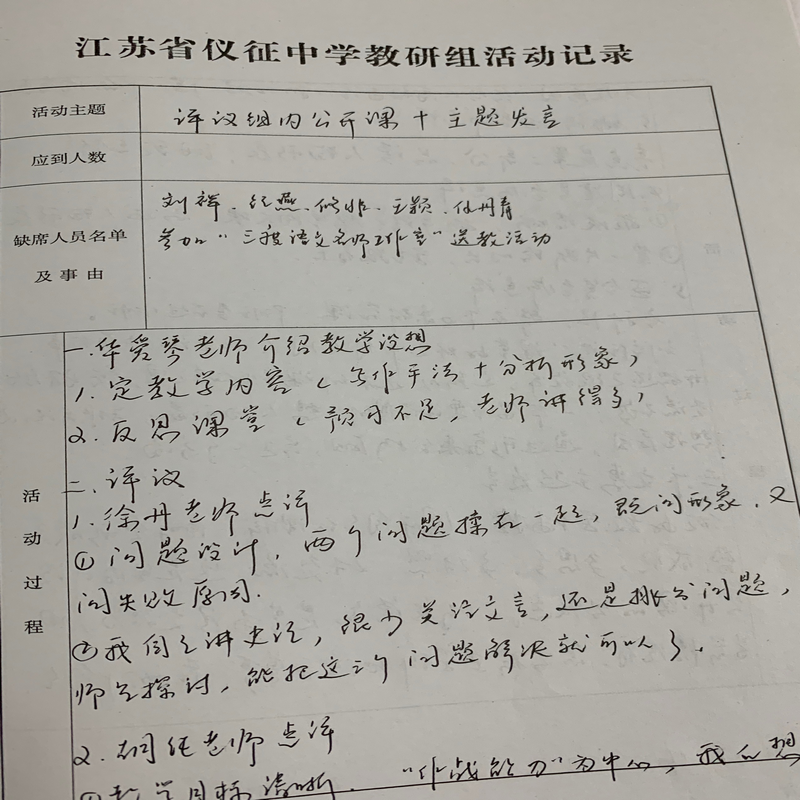 江苏省仪征中学教研组活动记录
活动主题
评议组内公开课十主题发言
应到人数
缺席人员名单
及事由
刘祥、纪燕、、王颖、
参加"三程语文名师工作室"送教活动
活动过程
一.华爱琴老师介绍教学设想
1.定教学内容(写作手法十分析形象)
2.反思课堂(预习不足,老师讲得多)
二.评议
1.徐丹老师点评
①问题设计,两个问题揉在一起,既问形象,又
问失败原因.
②我们之讲史沅,很少关注文言,还是挑出问题,
师生探讨,能把这三个问题解决就可以了.
2.胡老师点评
①教学目标清晰."作战能力"为中心,我们想